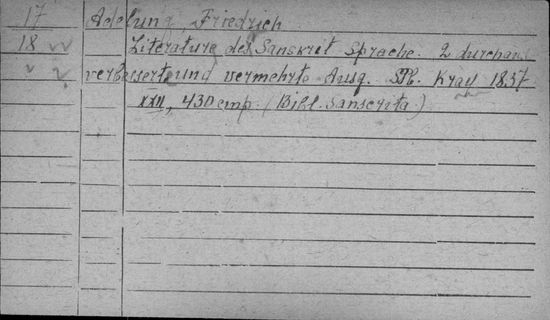 17 Adelung Friedrich
18 vv Literature des Sanskrit Sprache. 2 durchaus
v ? verbesserte und vermehrte Ausg. SPb. Kray 1837
XXII, 430 стр. (Bibl. Sanscrita)